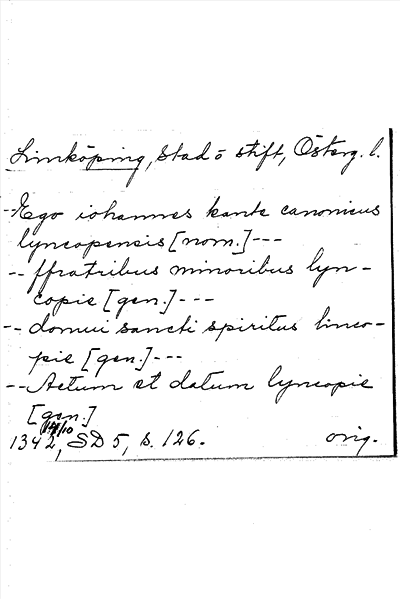 Linköping, Stad o stift, Österg. l.
--Ego iohannes kante canonicus
lyncopensis [nom.]---
-- ffratribus minoribus lyn-
copie [gen.]---
-- domui sancti spiritus linco-
pie [gen.]---
-- Actum et datum lyncopie
[gen.]
14/10
1342, SD 5, s. 126. orig.